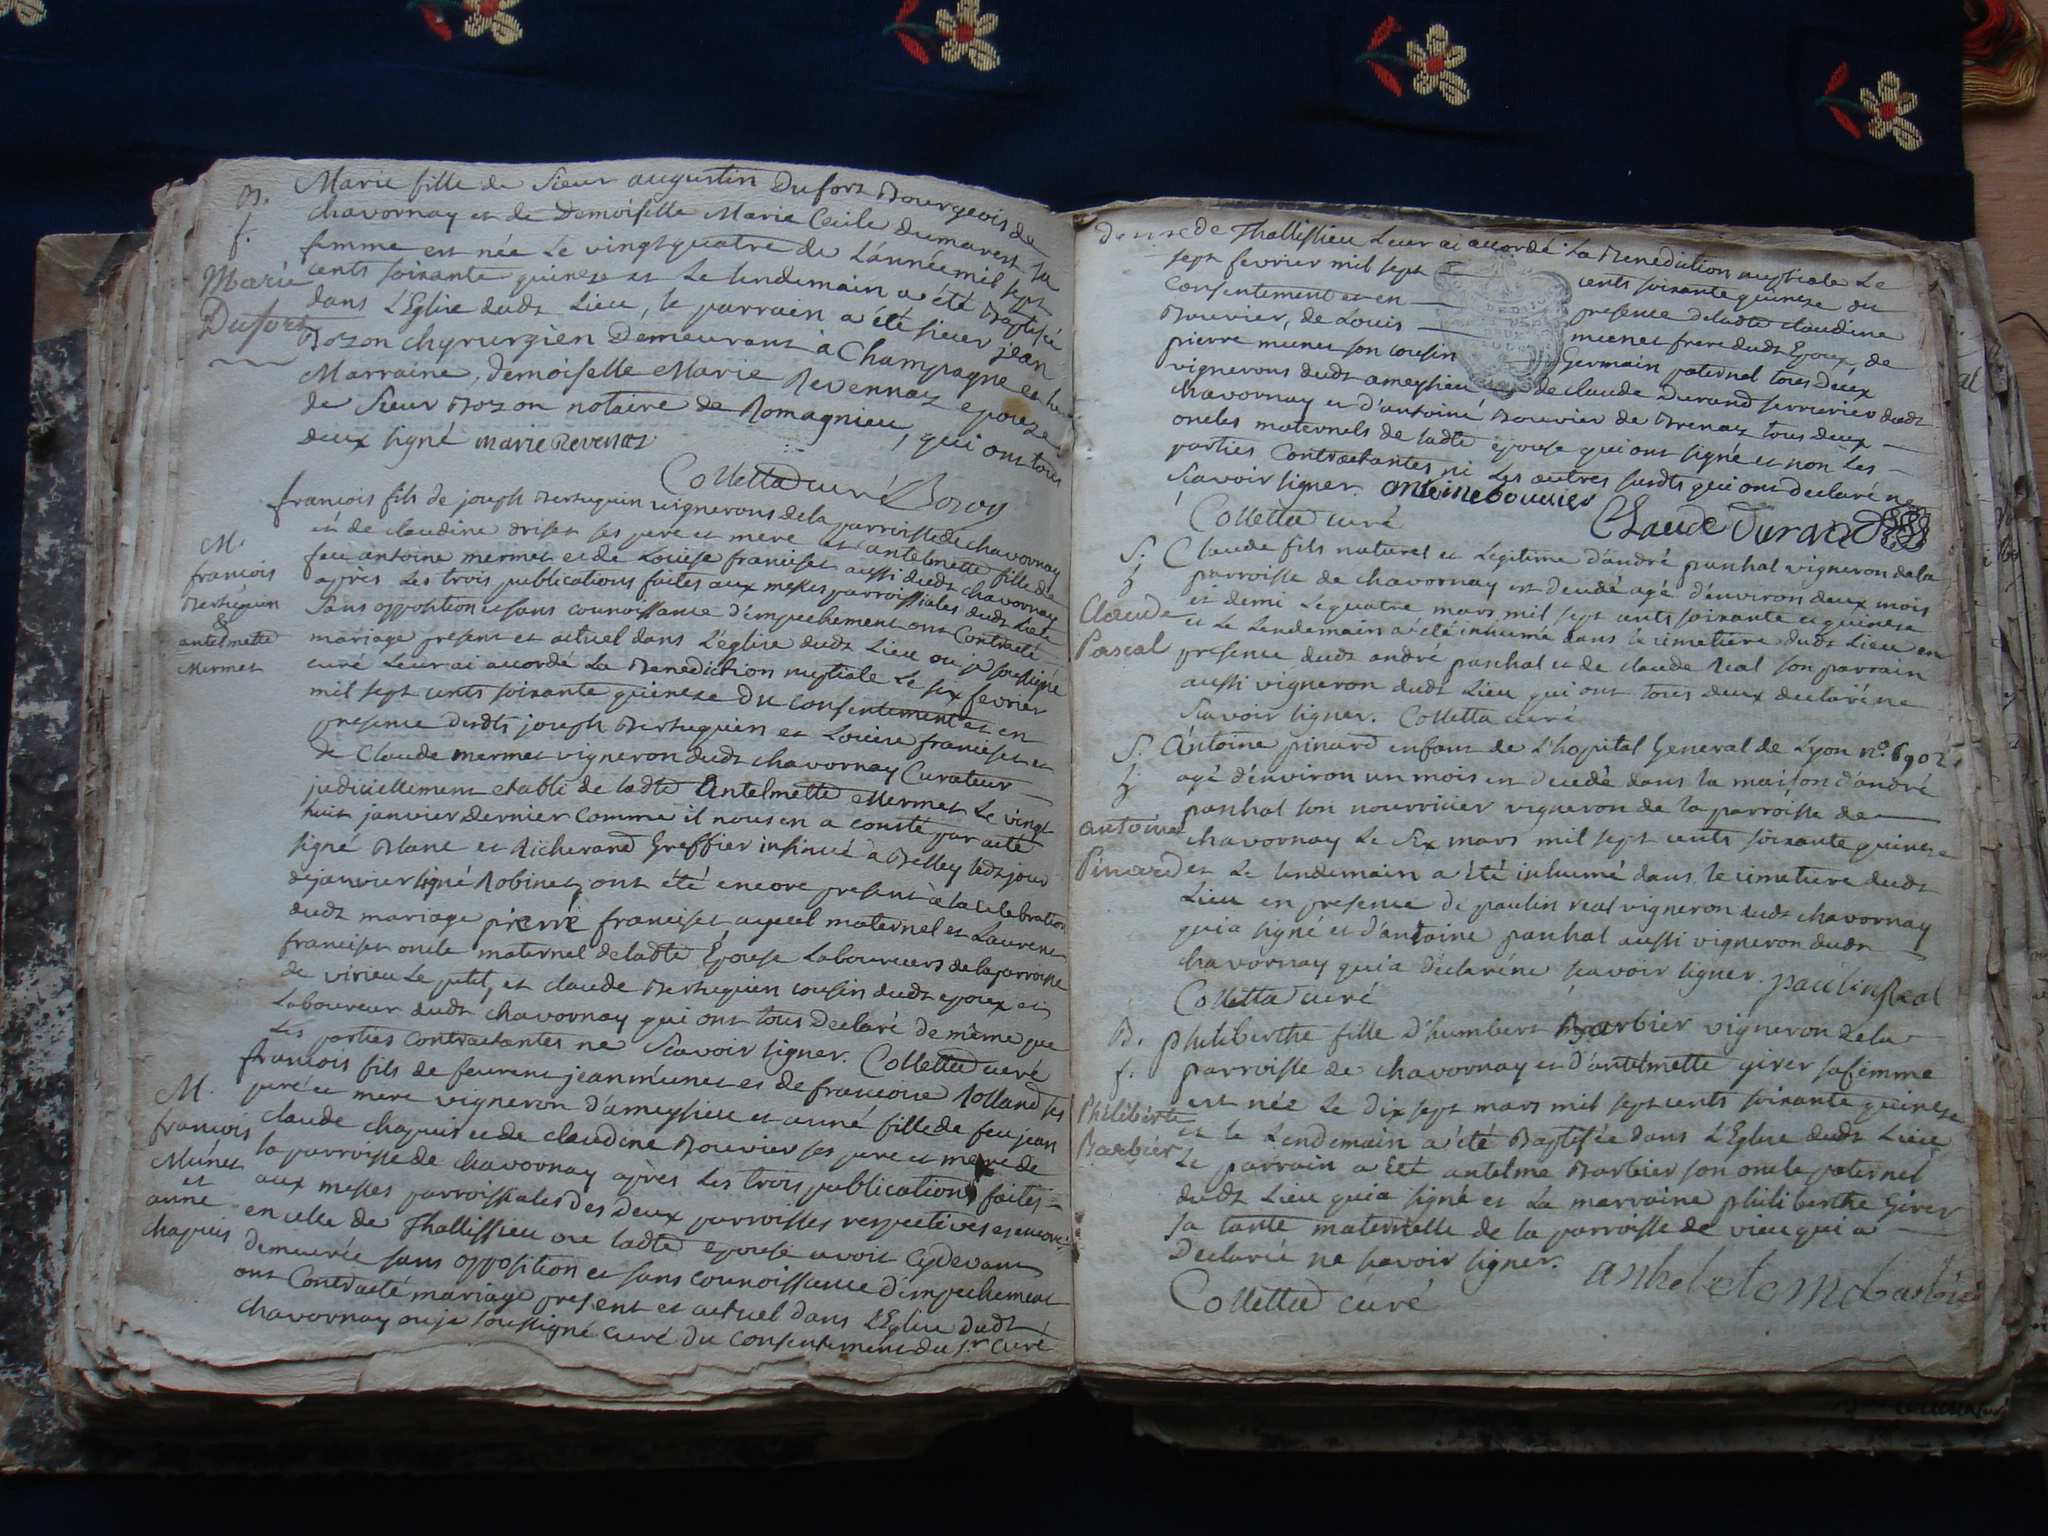 B.
f.
Marie
Dufort
Marie fille de Sieur augustin Dufort Bourgeois de
chavornay et de Demoiselle Marie Cecile dumarest sa
femme est née Le vingt quatre de L'année mil sept
cents soixante quinze et Le lendemain a été Baptisée
dans L'Eglise dudt Lieu, le parrain a été sieur jean
Bozon chyrurgien Demeurant à Champagne et la
Marraine, Demoiselle Marie Revennaz epouse
de Sieur Bozon notaire de Romagnieu, qui ont tous
deux signé marie Revenaz
Colletta curé Bozon
M.
francois
Berthuguin
&
antelmette
Mermet
francois fils de joseph Berthuguin vignerons de la parroisse de chavornay
et de claudine driset ses pere et mere et antelmette fille de
feu antoine mermet et de Louise franciset aussi dudt chavornay
après Les trois publications faites aux messes parroissiales dudt Lieu
sans opposition et sans connoissance d'empechement ont Contracté
mariage present et actuel dans L'église dudt Lieu ou je soussigné
curé Leur ai accordé La Benediction nuptiale Le six fevrier
mil sept cents soixante quinze Du consentement et en
presence desdts joseph Berthuguin et Louise franciset et
de Claude mermet vigneron dudt chavornay Curateur
judiciellement etabli de ladte Antelmette Mermet Le vingt
huit janvier dernier comme il nous en a consté par acte
signé Blanc et Richerand Greffier insinué à Belley ledt jour
de janvier signé Robinet, ont été encore present à la celebration
dudt mariage pierre franciset ayeul maternel et Laurent
franciset oncle maternel de ladte Epouse Laboureurs de la parroisse
de virieu Le petit, et claude Berthuguin cousin dudt epoux et
Laboureur dudt chavornay qui ont tous Declaré de même que
Les parties contractantes ne Scavoir signer. Colletta curé
M.
francois
Munet
et
anne
chapuis
francois fils de jean munet et de francoise Rolland ses
pere et mere vigneron d'ameysieu et anne fille de feu jean
claude chapuis et de claudine Bouvier ses pere et mere de
la parroisse de chavornay après Les trois publications faites
aux messes parroissiales des Deux parroisses respectives et encore
en celle de Thallissieu ou ladte epouse avoit cydevant
demeurée sans opposition et sans connoissance d'empechement
ont Contracté mariage present et actuel dans L'Eglise dudt
chavornay ou je soussigné curé du consentement du sr. curé
de Thallissieu Leur ai accordé La Benediction nuptiale Le
sept fevrier mil sept cents soixante quinze du
consentement et en presence de ladte claudine
Bouvier, de Louis munet frere dudt Epoux, de
pierre munet son cousin Germain paternel tous Deux
vignerons dudt ameysieu de claude Durand serrurier dudt
chavornay et d'antoine Bouvier de Brenaz tous deux
oncles maternels de ladte epouse qui ont signé et non Les
parties contractantes ni Les autres susdts qui ont declaré ne
Scavoir signer. antoine bouvier
Colletta curé Claude Durand
S.
Claude
Pascal
Claude fils naturel et Legitime d'andré paschal vigneron de la
parroisse de chavornay est decedé agé d'environ deux mois
et demi Le quatre mars mil sept cents soixante et quinze
et Le Lendemain a été inhumé dans le cimetiere dudt Lieu en
presence dudt andré paschal et de claude Real son parrain
aussi vigneron dudt Lieu qui ont tous deux declaré ne
Scavoir signer. Colletta curé
S.
antoine
Pinard
Antoine pinard enfant de L'hopital General de Lyon no. 6902
agé d'environ un mois est decedé dans la maison d'andré
paschal son nourricier vigneron de la parroisse de
chavornay Le six mars mil sept cents soixante quinze
et Le lendemain a été inhumé dans le cimetiere dudt
Lieu en presence de paulin real vigneron dudt chavornay
qui a signé et d'antoine paschal aussi vigneron dudt
chavornay qui a déclaré ne scavoir signer. paulin Real
Colletta curé
B.
f.
Philiberte
Barbier
philiberthe fille d'humbert Barbier vigneron de la
parroisse de chavornay et d'antelmette girer sa femme
est née Le Dix sept mars mil sept cents soixante quinze
et le Lendemain a été Baptisée dans L'Eglise dudt Lieu
Le parrain a été antelme Barbier son oncle paternel
dudt Lieu qui a signé et La marraine philiberthe Girer
sa tante maternelle de la parroisse de vieu qui a
Declaré ne scavoir signer.
Colletta curé